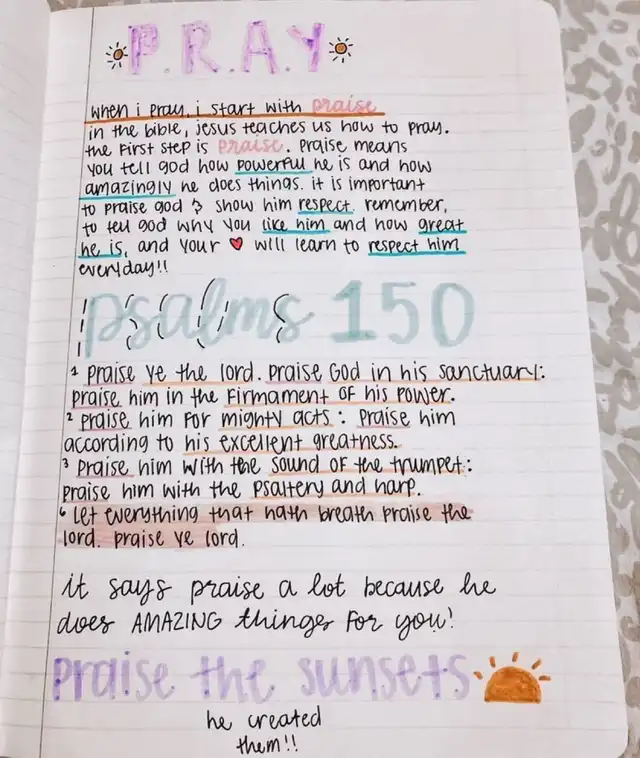 P.R.A.Y
when i pray, i start with praise
in the bible, jesus teaches us how to pray.
the first step is praise. praise means
you tell god how powerful he is and how
amazingly he does things. it is important
to praise god & show him respect. remember,
to tell god why you like him and how great
he is, and your ♥ will learn to respect him
everyday!!
psalms 150
1 praise ye the lord. praise God in his sanctuary:
praise him in the firmament of his power.
2 praise him for mighty acts: praise him
according to his excellent greatness.
3 praise him with the sound of the trumpet:
praise him with the psaltery and harp.
6 let everything that hath breath praise the
lord. praise ye lord.
it says praise a lot because he
does AMAZING things for you!
praise the sunsets
he created
them!!